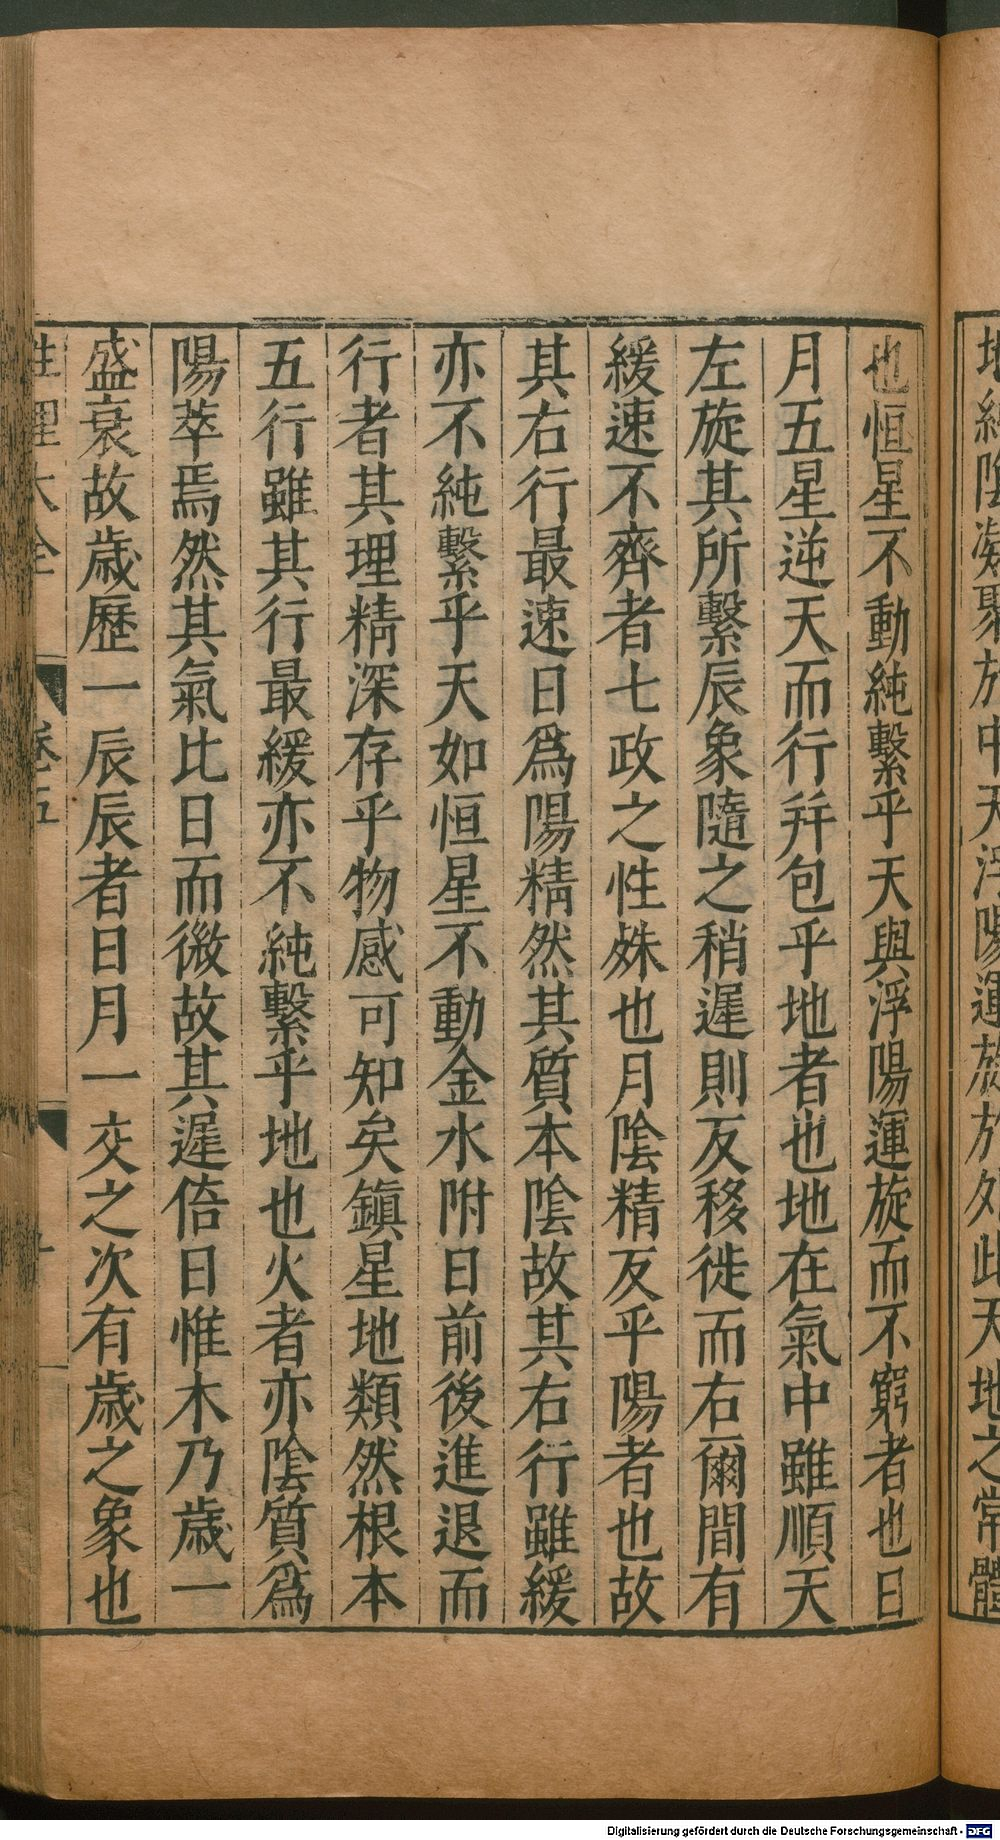 地純陰凝聚於中天浮陽運旋於外此天地之常體
也恒星不動純繫乎天與浮陽運旋而不窮者也日
月五星逆天而行幷包乎地者也地在氣中雖順天
左旋其所繫辰象隨之稍遲則反移徙而右爾間有
緩速不齊者七政之性殊也月陰精反乎陽者也故
其右行最速日爲陽精然其質本陰故其右行雖緩
亦不純繫乎天如恒星不動金水附日前後進退而
行者其理精深存乎物感可知矣鎮星地類然根本
五行雖其行最緩亦不純繫乎地也火者亦陰質爲
陽萃焉然其氣比日而微故其遲倍日惟木乃歲一
盛衰故歲歷一辰辰者日月一交之次有歲之象也
性理大全
卷五
Digitalisierung gefördert durch die Deutsche Forschungsgemeinschaft - DFG